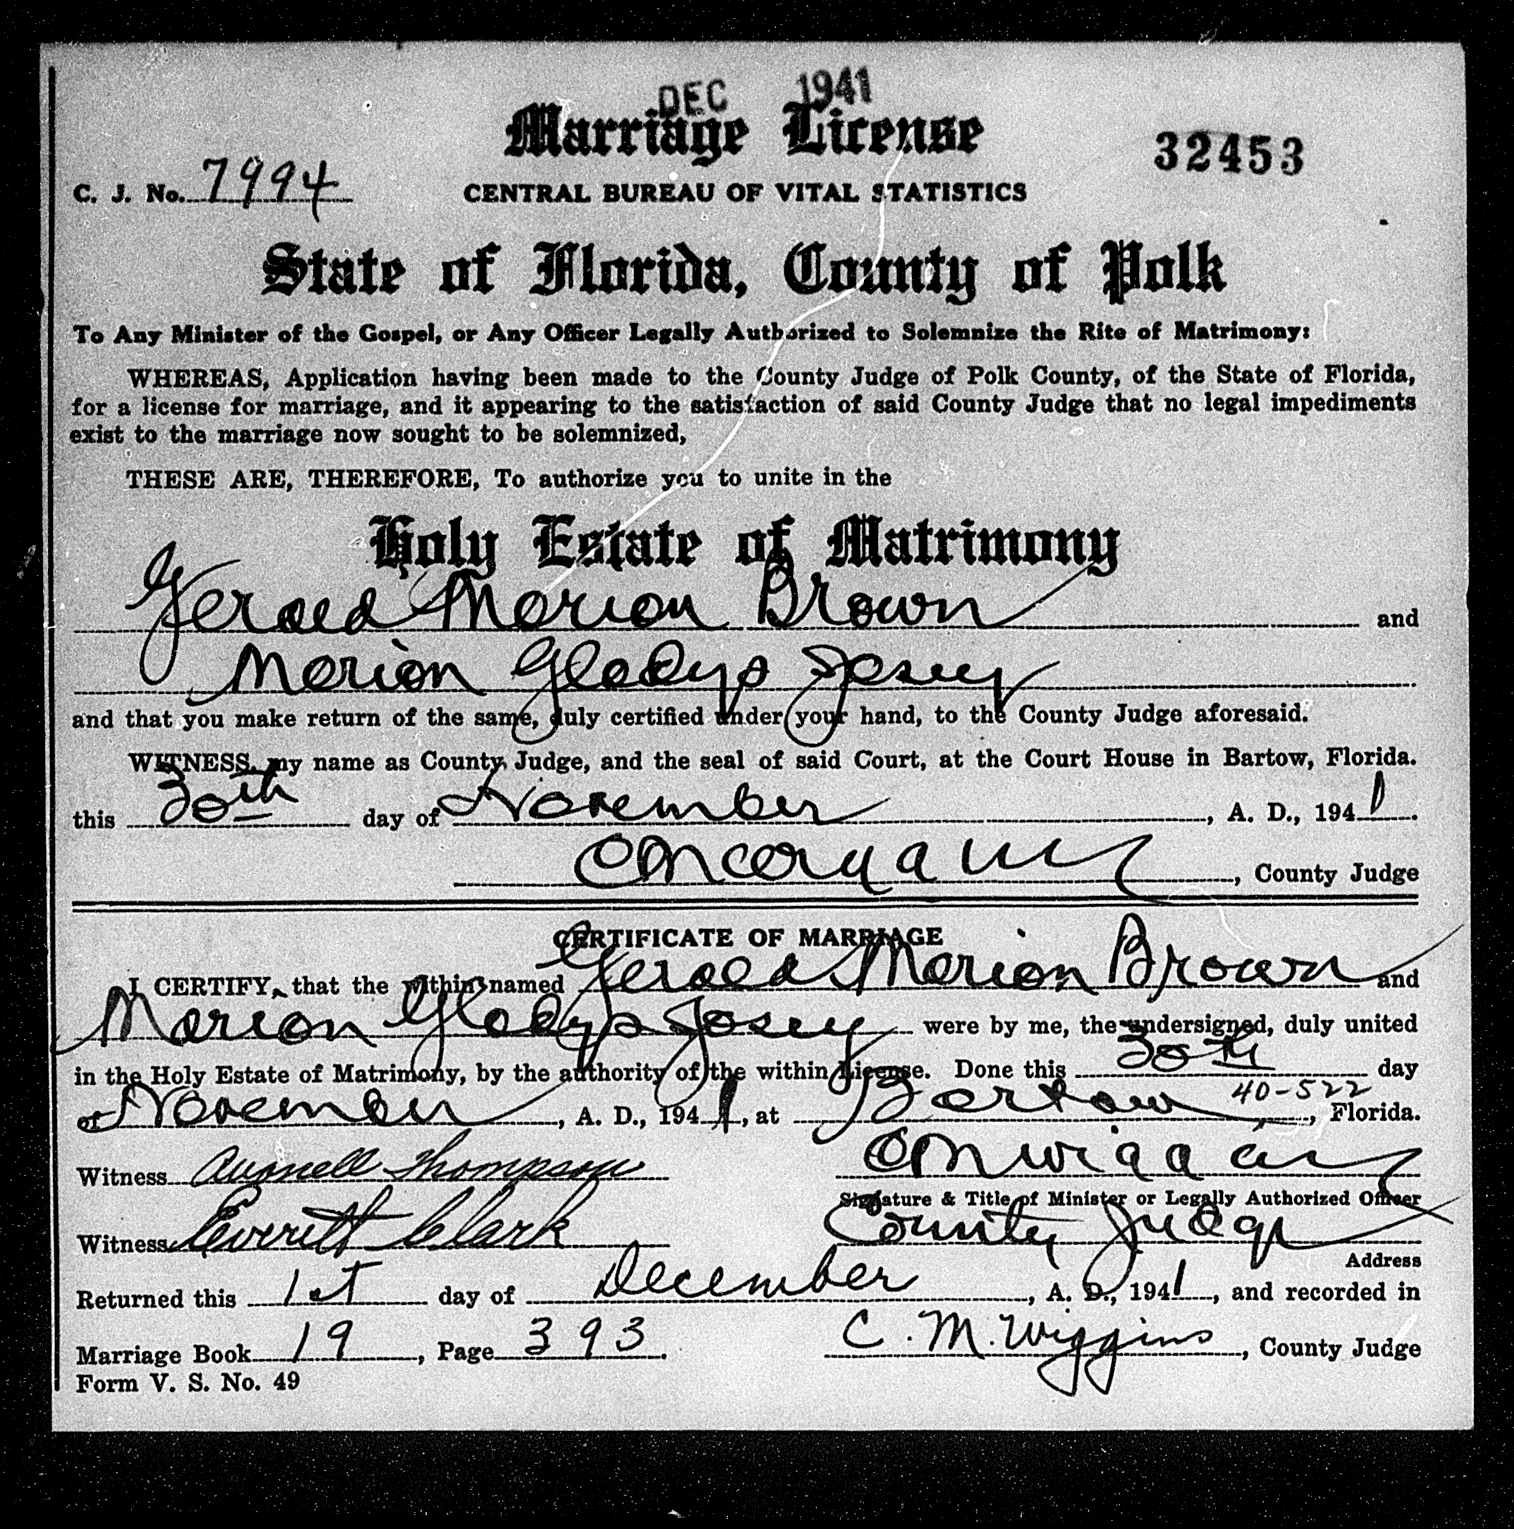 DEC 1941
Marriage License
32453
C. J. No. 7994
CENTRAL BUREAU OF VITAL STATISTICS
State of Florida, County of Polk
To Any Minister of the Gospel, or Any Officer Legally Authorized to Solemnize the Rite of Matrimony:
WHEREAS, Application having been made to the County Judge of Polk County, of the State of Florida,
for a license for marriage, and it appearing to the satisfaction of said County Judge that no legal impediments
exist to the marriage now sought to be solemnized,
THESE ARE, THEREFORE, To authorize you to unite in the
Holy Estate of Matrimony
Gerald Marion Brown and
Marion Gladys Josey
and that you make return of the same, duly certified under your hand, to the County Judge aforesaid.
WITNESS, my name as County Judge, and the seal of said Court, at the Court House in Bartow, Florida.
this 30th day of November, A. D., 1941.
, County Judge
CERTIFICATE OF MARRIAGE
I CERTIFY, that the within named Gerald Marion Brown and
Marion Gladys Josey were by me, the undersigned, duly united
in the Holy Estate of Matrimony, by the authority of the within License. Done this 30th day
of November, A. D., 1941, at Bartow 40-522, Florida.
Witness Thompson C M Wiggins
Signature & Title of Minister or Legally Authorized Officer
Witness Everett Clark County Judge
Address
Returned this 1st day of December, A. D., 1941, and recorded in
Marriage Book 19, Page 393. C. M. Wiggins, County Judge
Form V. S. No. 49